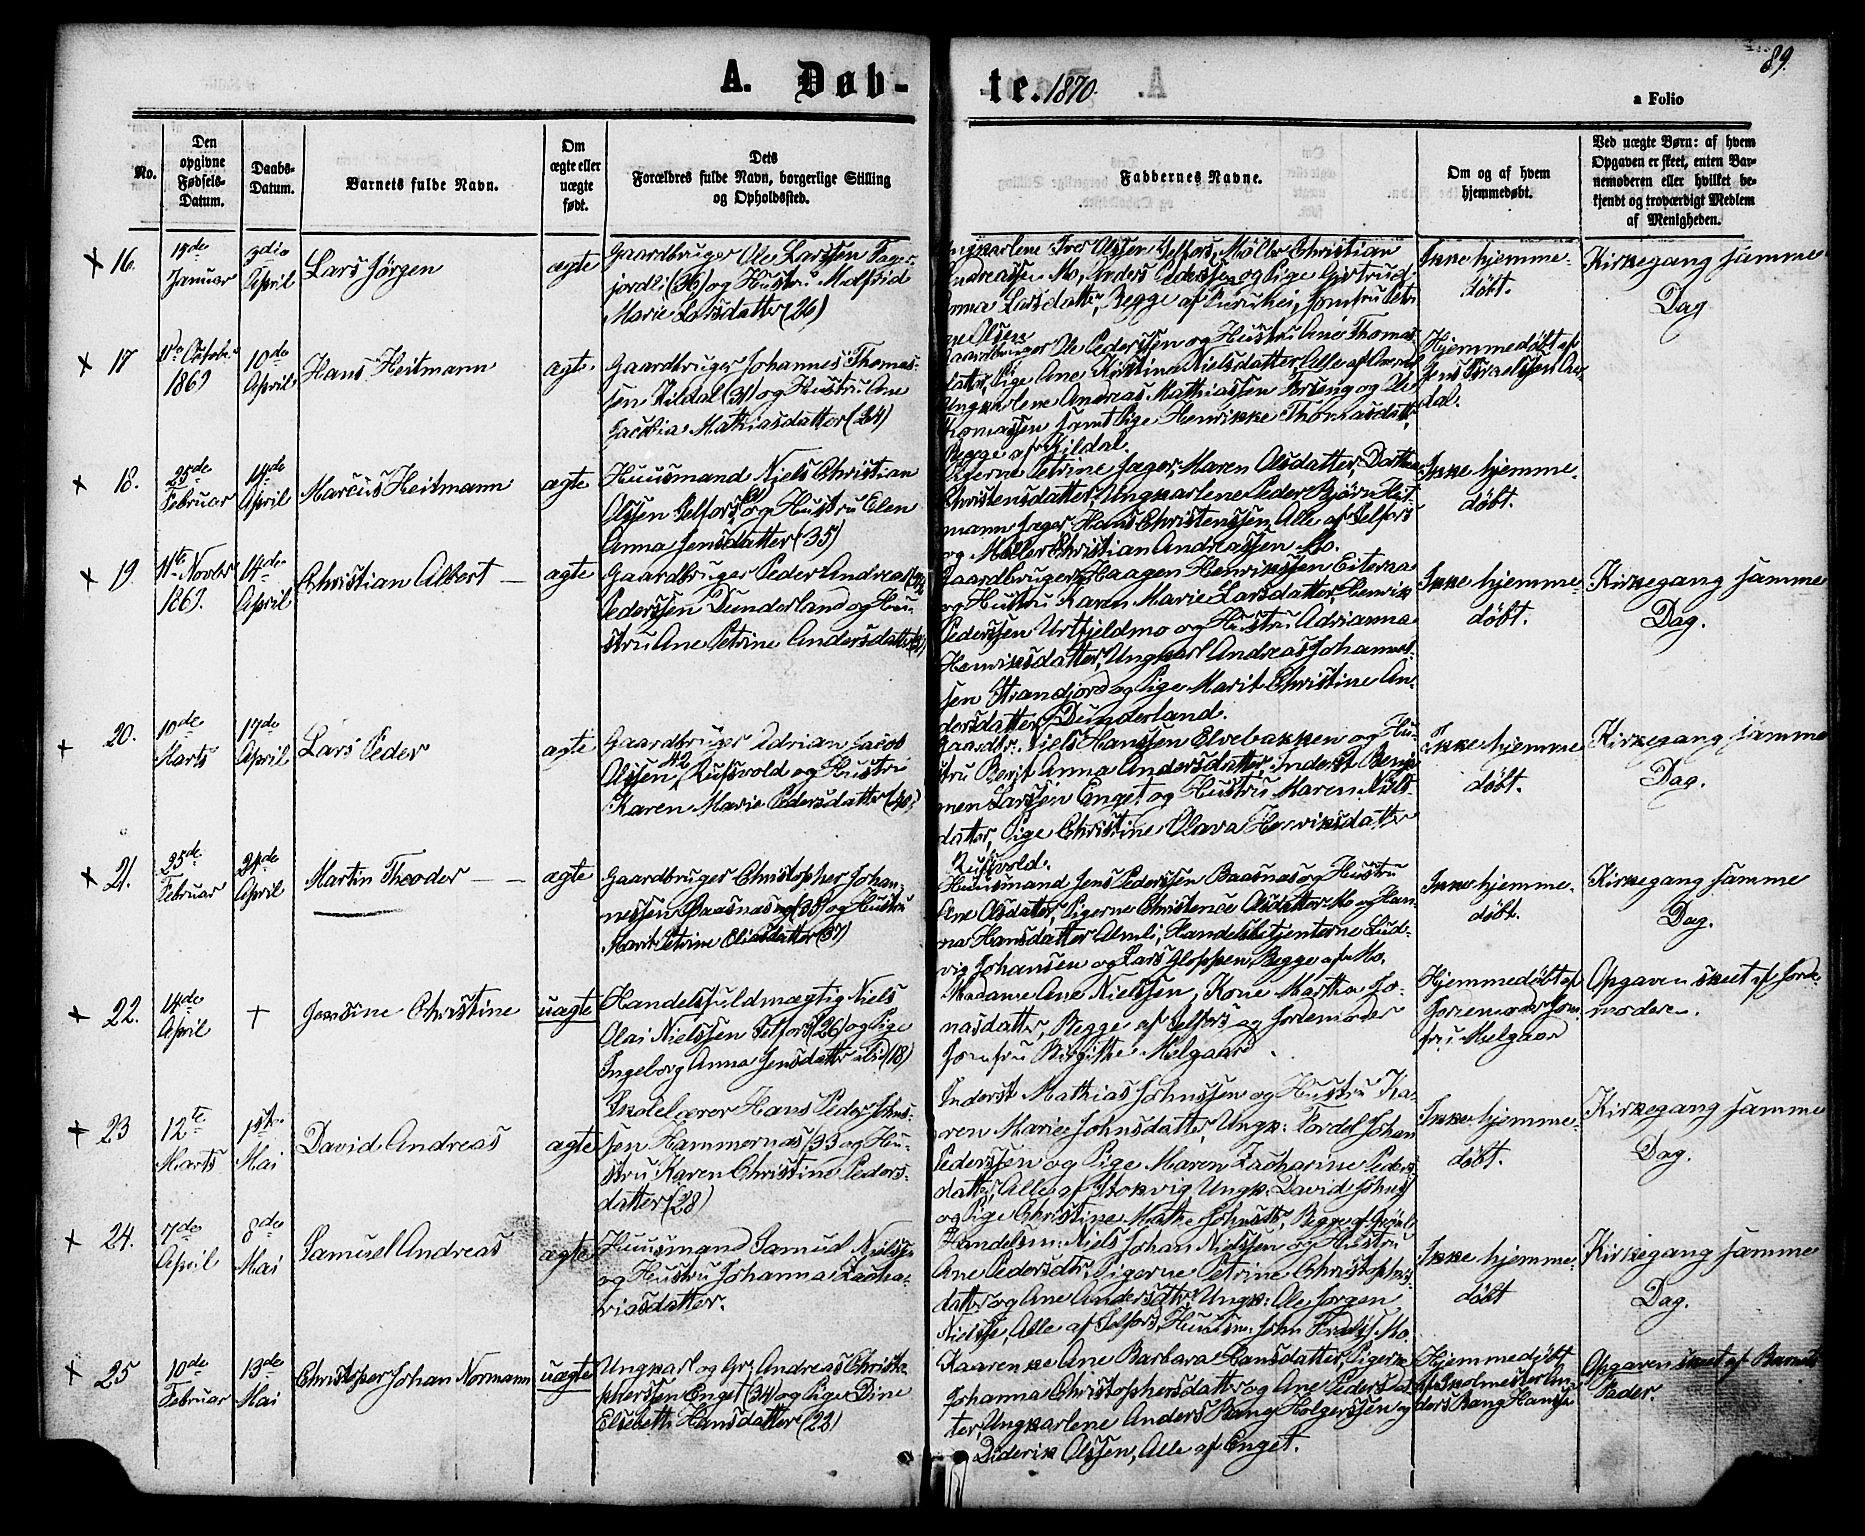 89.
A. Døb-
te. 1870.
a Folio
No.
Den
opgivne
Fødsels-
Datum.
Daabs-
Datum.
Barnets fulde Navn.
Om
ægte eller
uægte
født.
Dets
Forældres fulde Navn, borgerlige Stilling
og Opholdssted.
Faddernes Navne.
Om og af hvem
hjemmedøbt.
Ved uægte Børn: af hvem
Opgaven er skeet, enten Bar-
nemoderen eller hvilket be-
kjendt og troværdigt Medlem
af Menigheden.
16.
Januar
3die
April
Lars Jørgen
ægte
Gaardbruger Ole Larssen Fager-
jordli (36) og Hustru Malfrid
Marie Larsdatter (26)
Ungkarlene Iver Olssen Selfors, Møller Christian
Andreassen Mo, Anders Pederssen og Pige Gjertrud
Anna Larsdatter, Begge af Jomfru Petri-
ne Olsen
Ikke hjemme-
døbt.
Kirkegang samme
Dag
17
Octobr
1869
10de
April
Hans Heitmann
ægte
Gaardbruger Johannes Thomas-
sen Kildal (31) og Hustru Ane
Jacobia Mathiasdatter (24)
Gaardbruger Ole Pederssen og Hustru Ane Thomas-
datter, Pige Ane Kristina Nielsdatter, Alle af
Ungkarlene Andreas Mathiassen og Ole
Thomassen samt Pige Henrikke Thomasdatt.
Begge af Kildal.
Hjemmedøbt af
Jens Israelssen
dal.
18.
25de
Februar
14de
April
Marcus Heitmann
ægte
Huusmand Niels Christian
Olssen Selfors og Hustru Elen
Anna Jensdatter (35)
Pigerne Petrine Jæger, Maren Olsdatter, Dorthea
Christensdatter, Ungkarlene Peder Bjørn Heit-
mann Jæger, Hans Christenssen, Alle af Selfors
og Møller Christian Andreassen Mo.
Ikke hjemme-
døbt.
19
11te Novbr
1869.
14de
April
Christian Albert
ægte
Gaardbruger Peder Andreas
Pederssen Dunderland og Hu-
stru Ane Petrine Andersdatter
Gaardbruger Haagen Henrikssen Eiteraa
og Hustru Karen Marie Larsdatter, Henrik
Pederssen Urtfjeldmo og Hustru Adrianna
Henriksdatter, Ungkarl Andreas Johannes-
sen Strandjord og Pige Marit Christine An-
dersdatter Dunderland.
Ikke hjemme-
døbt.
Kirkegang samme
Dag.
20.
10de
Marts
17de
April
Lars Peder
ægte
Gaardbruger Adrian Jacob
Olssen Rusvold og Hustru
Karen Marie Pedersdatter (40)
Gaardbr. Niels Hanssen Elvebakken og Hu-
stru Berit Anna Andersdatter, Inderst Benja-
men Larssen Enget og Hustru Maren Niels-
datter, Pige Christine Olava Henriksdatter
Rusvold.
Ikke hjemme
døbt.
Kirkegang samme
Dag.
21.
25de
Februar
24de
April
Martin Theodor
ægte
Gaardbruger Christopher Johan-
nessen Baasnæs (38) og Hustru
Marit Petrine Eliasdatter (37)
Huusmand Jens Pederssen Baasnæs og Hustru
Ane Olsdatter, Pigerne Christence Olsdatter Mo og Han-
na Hansdatter Almli, Handelsbetjenterne Lud-
vig Johansen og Lars Gloppen, Begge af Mo.
Ikke hjemme-
døbt.
Kirkegang samme
Dag.
22.
14de
April
+
Jensine Christine
uægte
Handelsfuldmægtig Niels
Olai Nielssen Selfors (26) og Pige
Ingeborg Anna Jensdatter ibid (18)
Madame Ane Nielssen, Kone Martha Jo-
nasdatter, Begge af Selfors og Jordemoder
Jomfru Birgitte Melgaar.
Hjemmedøbt af
Jordemoder Jom-
fru Melgaar
Opgaven skeet af Jorde-
moderen.
23
12te
Marts
1ste
Mai
David Andreas
ægte
Skolelærer Hans Peder Johns-
sen Hammernæs (33 og Hu-
stru Karen Christine Peders-
datter (28)
Inderst Mathias Johnssen og Hustru Ka-
ren Marie Johnsdatter, Ungk. Tordel Johan
Pederssen og Pige Maren Zacharine Peders-
datter, Alle af Stokvig, Ungk: David Johns
og Pige Christine Mathe Johnsdtr, Begge af
Ikke hjemme-
døbt.
Kirkegang samme
Dag.
24.
7de
April
8de
Mai
Samuel Andreas
ægte
Huusmand Samuel Nielssen
og Hustru Johanna Zacha-
riasdatter.
Handelsm: Niels Johan Nielssen og Hustru
Ane Pedersdtr, Pigerne Petrine Christophers-
datter og Ane Andersdtr, Ungk: Ole Jørgen
Nielssen, Alle af Selfors, Huusm: John Mo.
Ikke hjemme-
døbt
Kirkegang samme
Dag.
25
10de
Februar
13de
Mai
Christopher Johan Normann
uægte
Ungkarl og Gr. Andreas Christo-
pherssen Enget (34) og Pige Dine
Elisabeth Hansdatter (22)
Kaarenke Ane Barbara Hansdatter, Pigerne
Johanna Christophersdatter og Ane Pedersdat-
ter, Ungkarlene Anders Bang Holgerssen og
Diderik Olssen, Alle af Enget.
Hjemmedøbt
af Skolmester An-
ders Bang Hanssen
Opgaven skeet af Barnets
Fader.